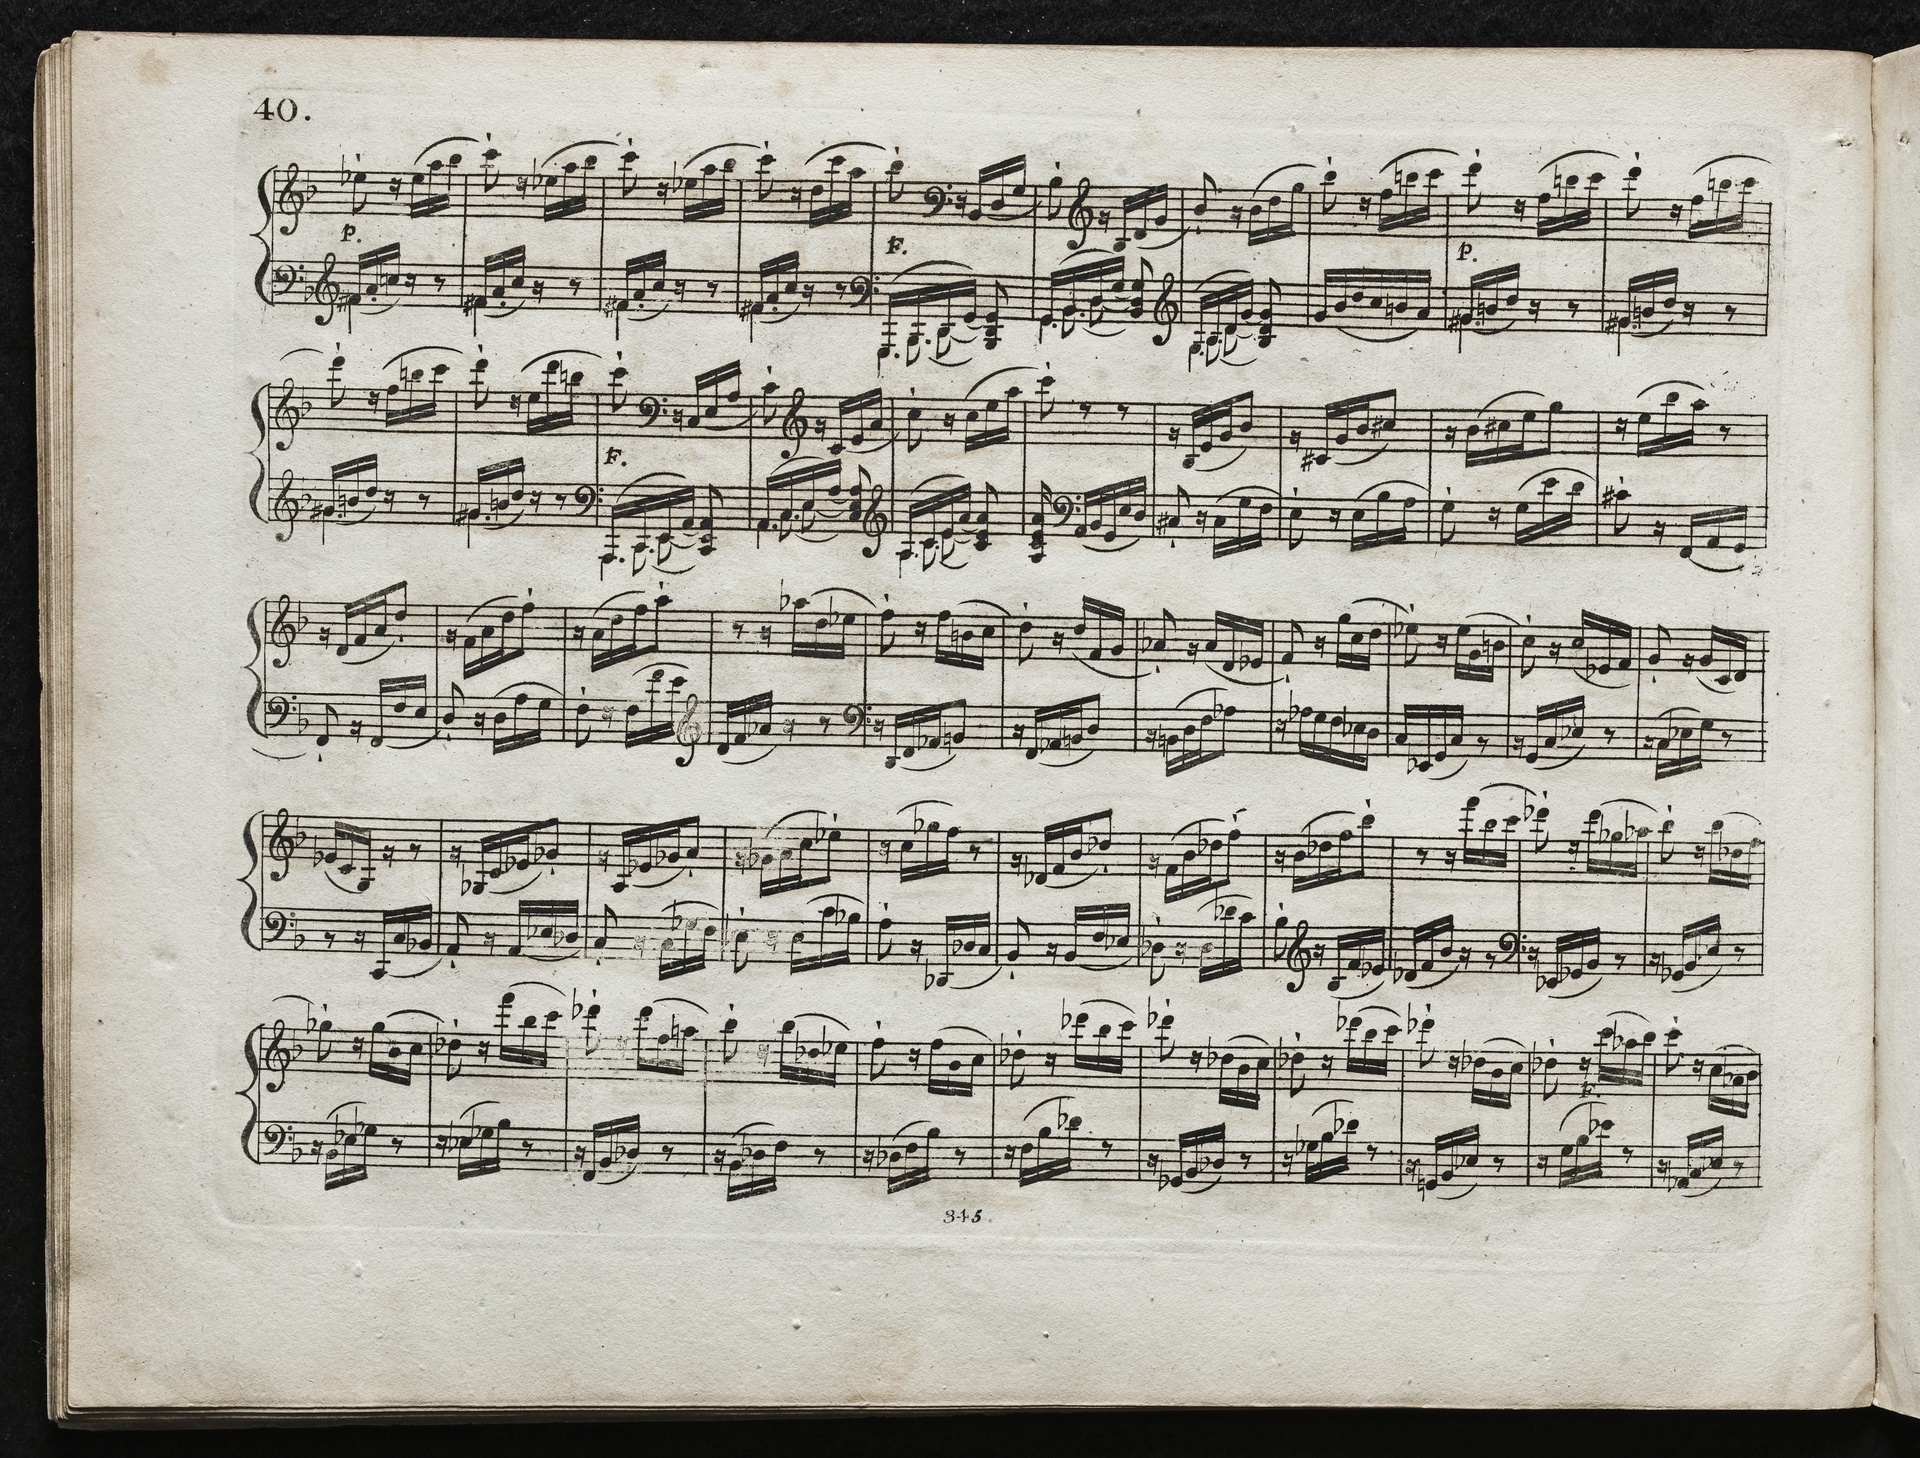 40.
p.
F.
p.
F.
F.
345.